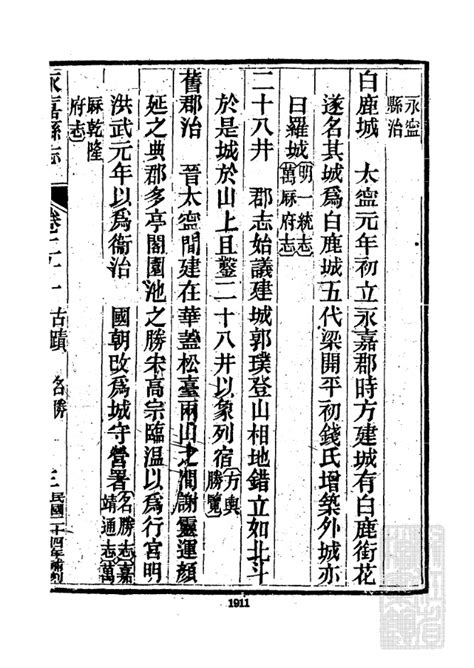 永寧
縣治
白鹿城　太寧元年初立永嘉郡時方建城有白鹿銜花
遂名其城爲白鹿城五代梁開平初錢氏增築外城亦
曰羅城明一統志
萬厤府志
二十八井　郡志始議建城郭璞登山相地錯立如北斗
於是城於山上且鑿二十八井以象列宿方輿
勝覽
舊郡治　晉太寧閒建在華蓋松臺兩山之閒謝靈運顏
延之典郡多亭閣園池之勝宋高宗臨温以爲行宮明
洪武元年以爲衞治　國朝改爲城守營署名勝志嘉
靖通志萬
厤乾隆
府志
永嘉縣志
卷二十一　古蹟　名勝
三
民國二十四年補刻
1911